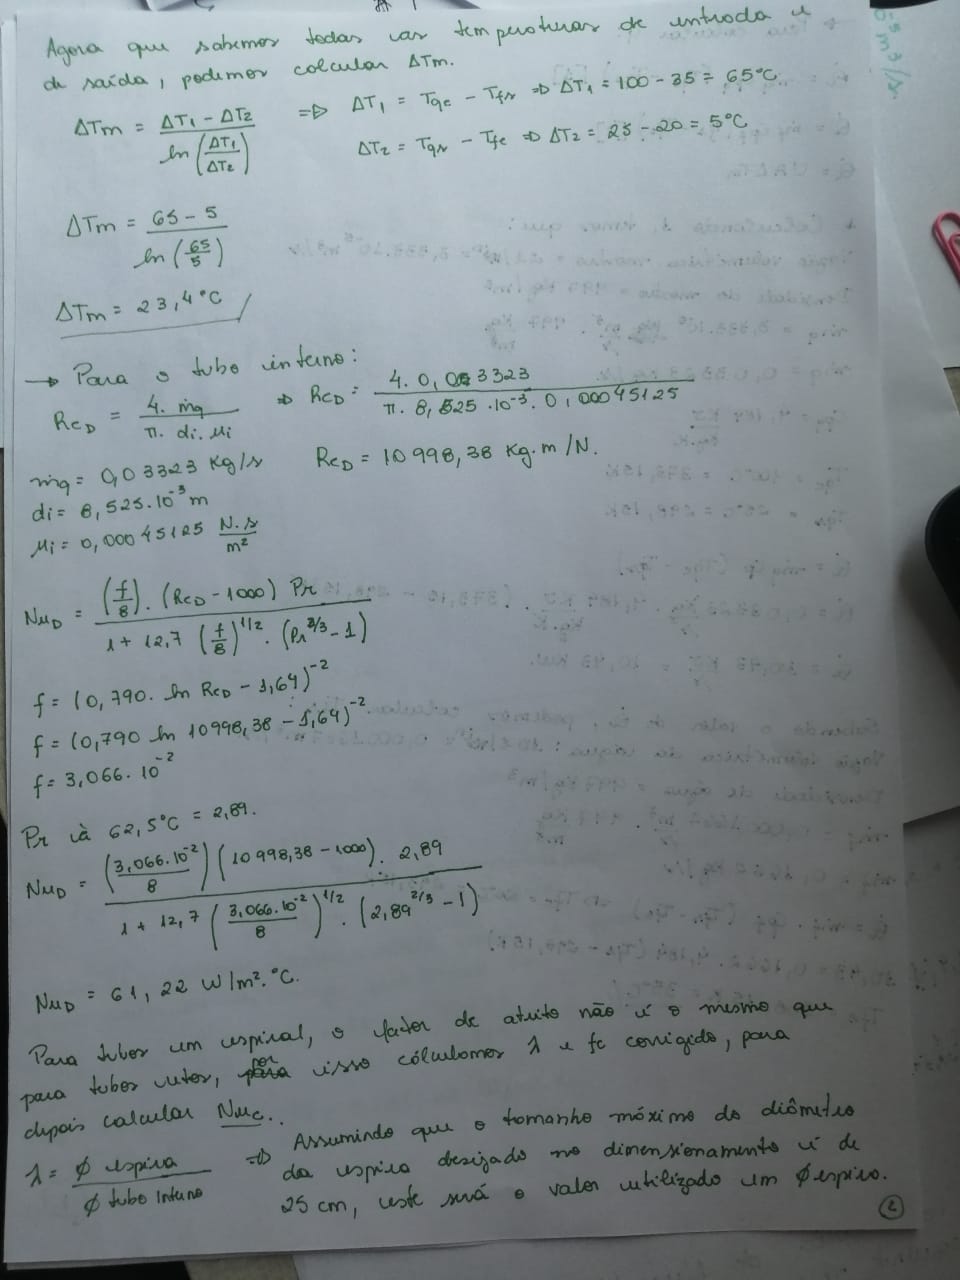 Agora que sabemos todas as temperaturas de entrada e
de saída, podemos calcular ΔTm.
ΔTm = (ΔT1 - ΔT2) / ln(ΔT1/ΔT2) ⇒ ΔT1 = Tqe - Tfs ⇒ ΔT1 = 100 - 35 = 65°C
ΔT2 = Tqs - Tfe ⇒ ΔT2 = 25 - 20 = 5°C
ΔTm = (65 - 5) / ln(65/5)
ΔTm = 23,4°C
→ Para o tubo interno:
ReD = 4. ṁq / π. di. μi ⇒ ReD = 4. 0,03323 / π. 8,525 .10⁻³. 0,00045125
ṁq = 0,03323 Kg/s ReD = 10998,38 Kg.m/N.
di = 8,525.10⁻³ m
μi = 0,00045125 N.s/m²
NuD = (f/8). (ReD - 1000) Pr / 1 + 12,7 (f/8)^1/2 . (Pr^2/3 - 1)
f = (0,790. ln ReD - 1,64)⁻²
f = (0,790 ln 10998,38 - 1,64)⁻²
f = 3,066. 10⁻²
Pr à 62,5°C = 2,89.
NuD = (3,066.10⁻²/8) (10998,38 - 1000). 2,89 / 1 + 12,7 (3,066.10⁻²/8)^1/2 . (2,89^2/3 - 1)
NuD = 61,22 W/m².°C.
Para tubos em espiral, o fator de atrito não é o mesmo que
para tubos retos, por isso cálculamos λ e fc corrigido, para
depois calcular Nuc.
λ = Ø espira / Ø tubo interno ⇒ Assumindo que o tamanho máximo do diâmetro
da espira desejado no dimensionamento é de
25 cm, este será o valor utilizado em Ø espira.
2